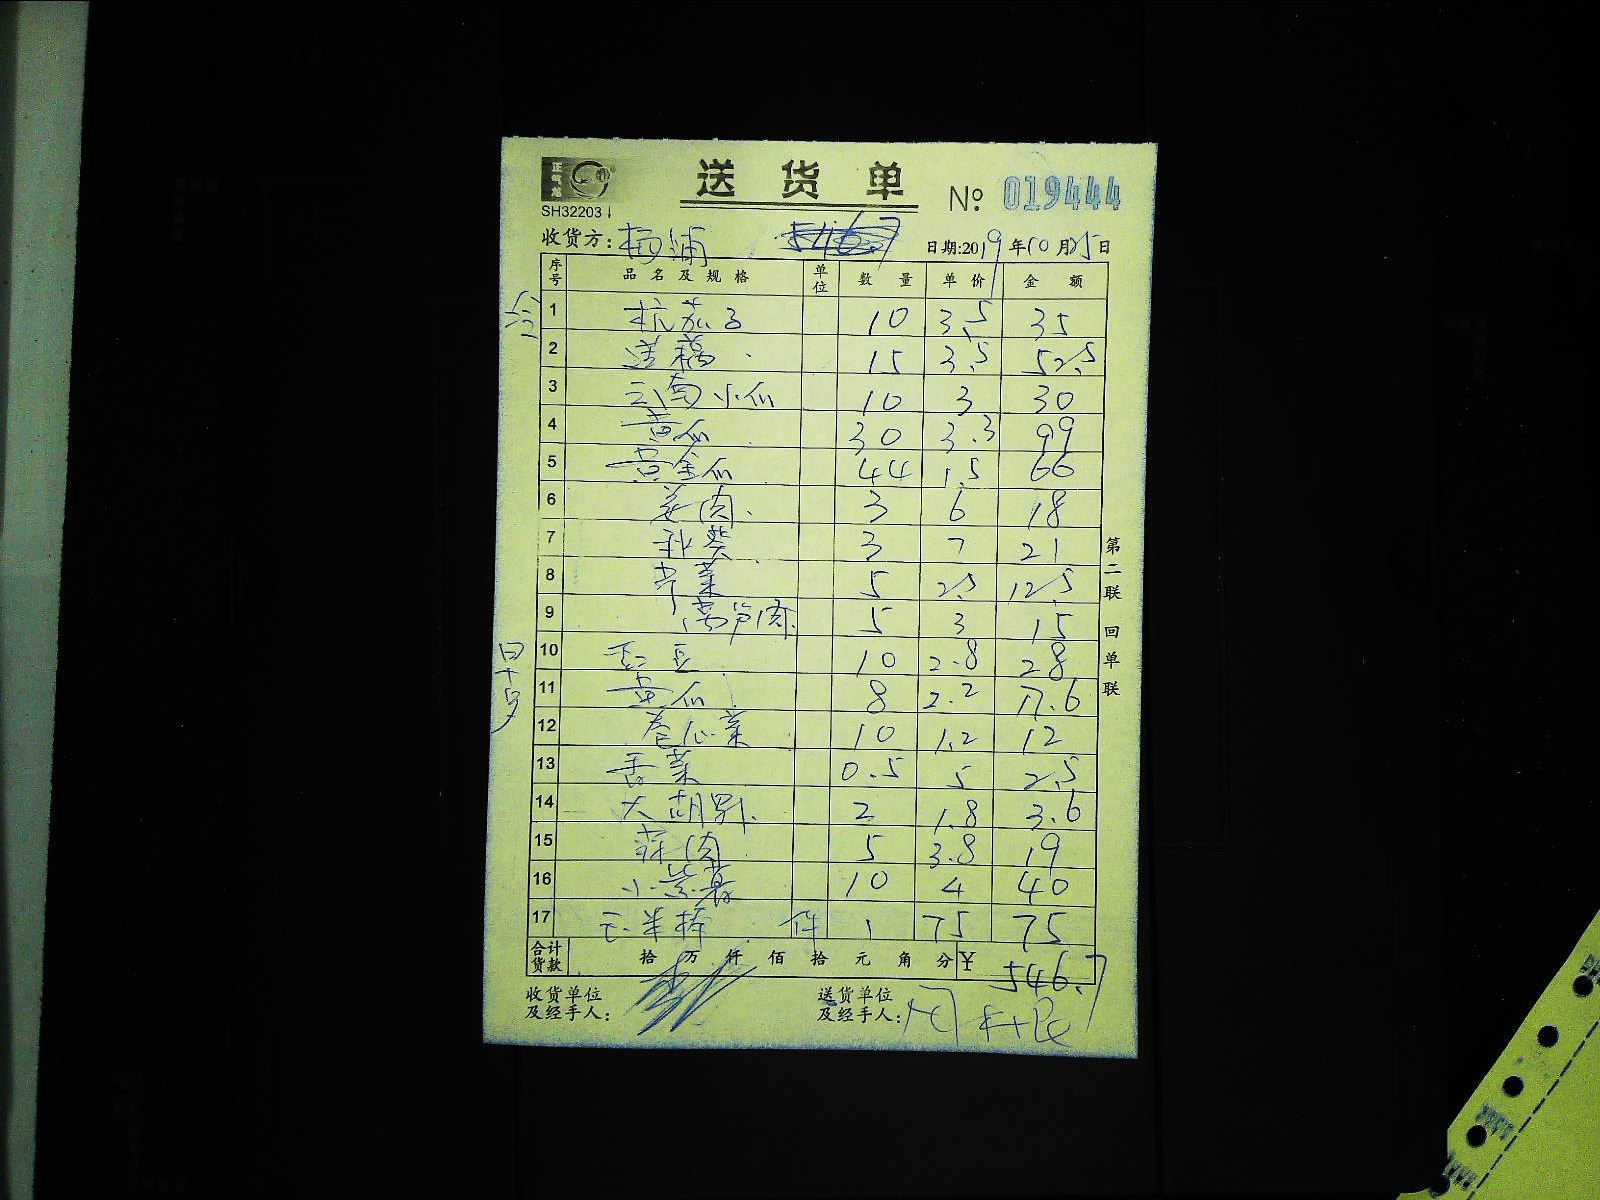 送货单
No: 019444
SH32203
收货方: 杨浦 546.7 日期:2019年10月25日
序号 品名及规格 单位 数量 单价 金额
1 杭茄子 10 3.5 35
2 莲藕 15 3.5 52.5
3 云南小瓜 10 3 30
4 黄瓜 30 3.3 99
5 黄金瓜 44 1.5 66
6 姜肉 3 6 18
7 3 7 21
8 芹菜 5 2.5 12.5
9 莴笋肉 5 3 15
10 豇豆 10 2.8 28
11 黄瓜 8 2.2 17.6
12 卷心菜 10 1.2 12
13 香菜 0.5 5 2.5
14 大胡 2 1.8 3.6
15 蒜肉 5 3.8 19
16 小紫薯 10 4 40
17 玉米棒 件 1 75 75
合计货款 拾 万 仟 佰 拾 元 角 分 ¥ 546.7
收货单位及经手人:
送货单位及经手人:
第二联 回单联